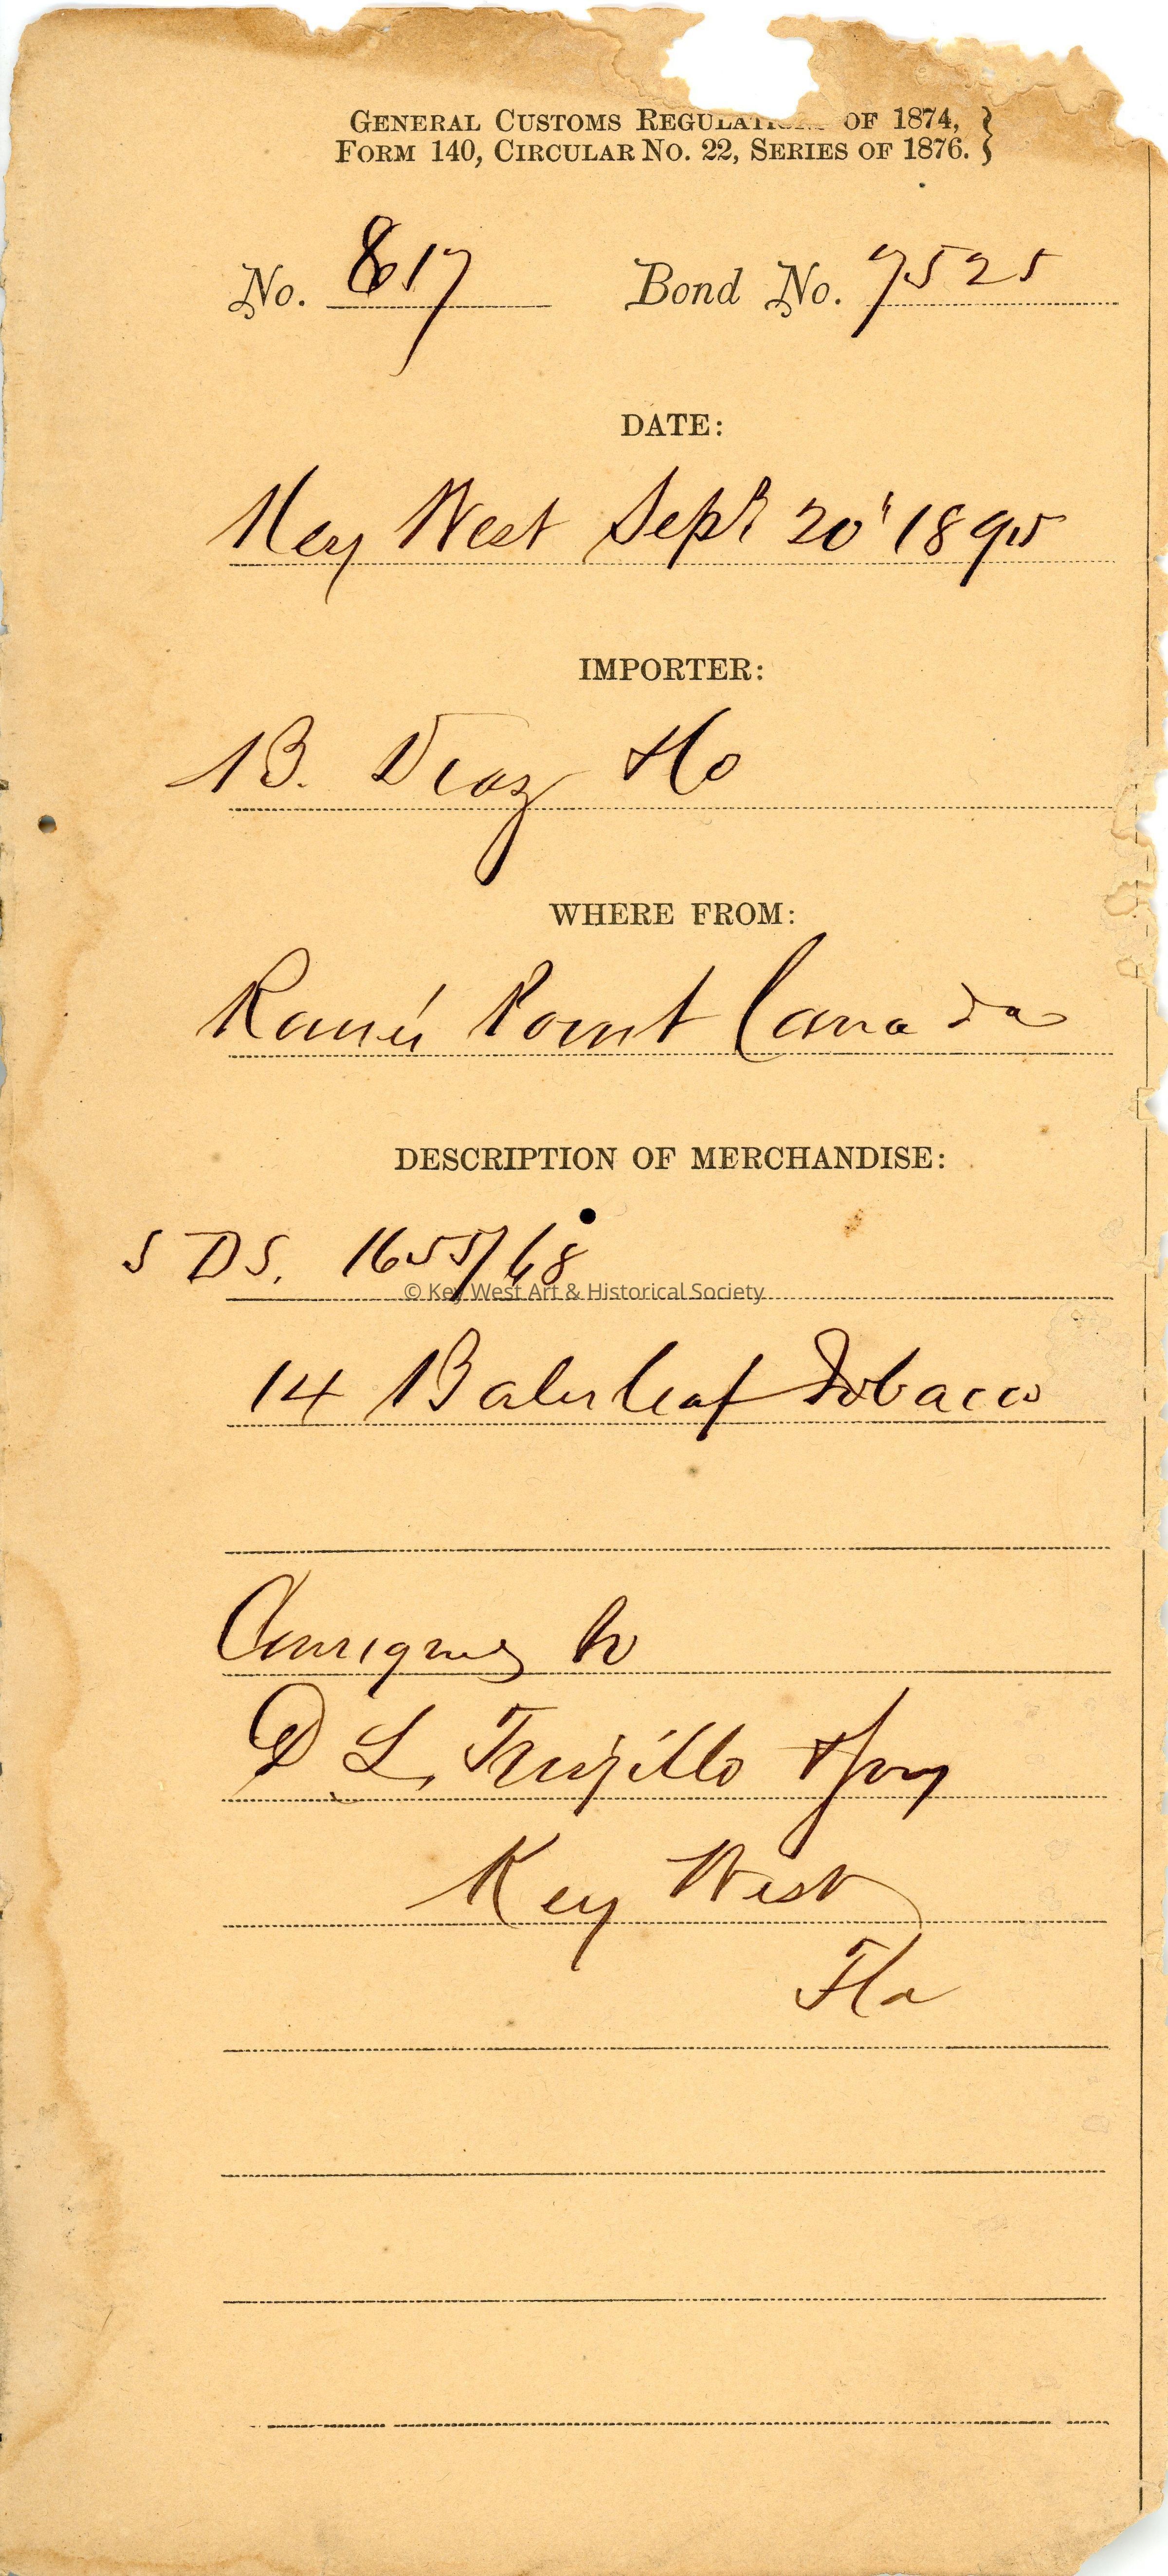 GENERAL CUSTOMS REGULATIONS OF 1874,
FORM 140, CIRCULAR No. 22, SERIES OF 1876.
No. 817 Bond No. 7525
DATE:
Key West Sept 20" 1895
IMPORTER:
B. Diaz &Co
WHERE FROM:
Point Canada
DESCRIPTION OF MERCHANDISE:
S DS. 1655/68
© Key West Art & Historical Society
14 Bales leaf Tobacco
Consigned to
D L Trujillo & Sons
Key West
Fla